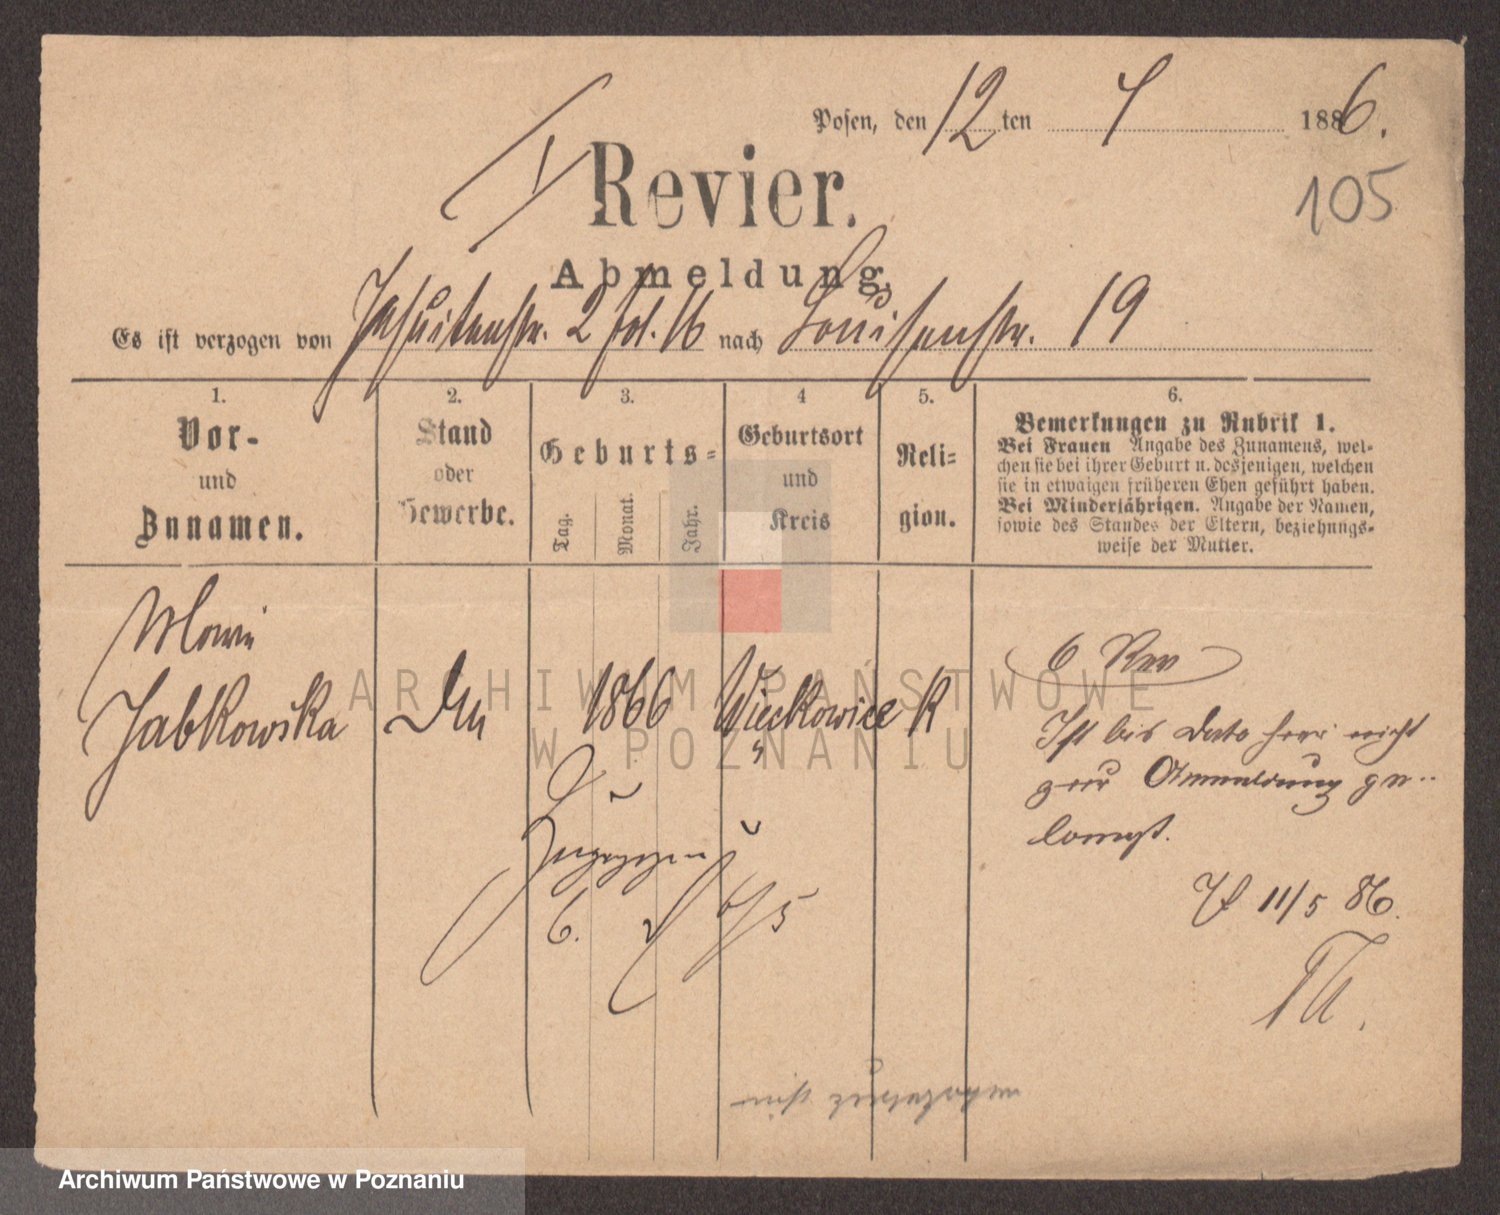 Posen, den 12 ten 4 1886.
105
I Revier.
Abmeldung.
Es ist verzogen von Jesuitenstr. 2 fol. 16 nach Louisenstr. 19
1. 2. 3. 4 5. 6.
Vor- und Zunamen.
Stand oder Gewerbe.
Geburts-
Tag. Monat. Jahr.
Geburtsort und Kreis
Reli-
gion.
Bemerkungen zu Rubrik 1.
Bei Frauen Angabe des Zunamens, wel-
chen sie bei ihrer Geburt u. desjenigen, welchen
sie in etwaigen früheren Ehen geführt haben.
Bei Minderjährigen. Angabe der Namen,
sowie des Standes der Eltern, beziehungs-
weise der Mutter.
Marie
Jabkowska 1866 Więckowice K
6 Rev
Ist bis Dato hier nicht
zur Anmeldung ge-
langt.
11/5 86.
Th.
Zugezogen
6. 6/5
ARCHIWUM PAŃSTWOWE
W POZNANIU
Archiwum Państwowe w Poznaniu